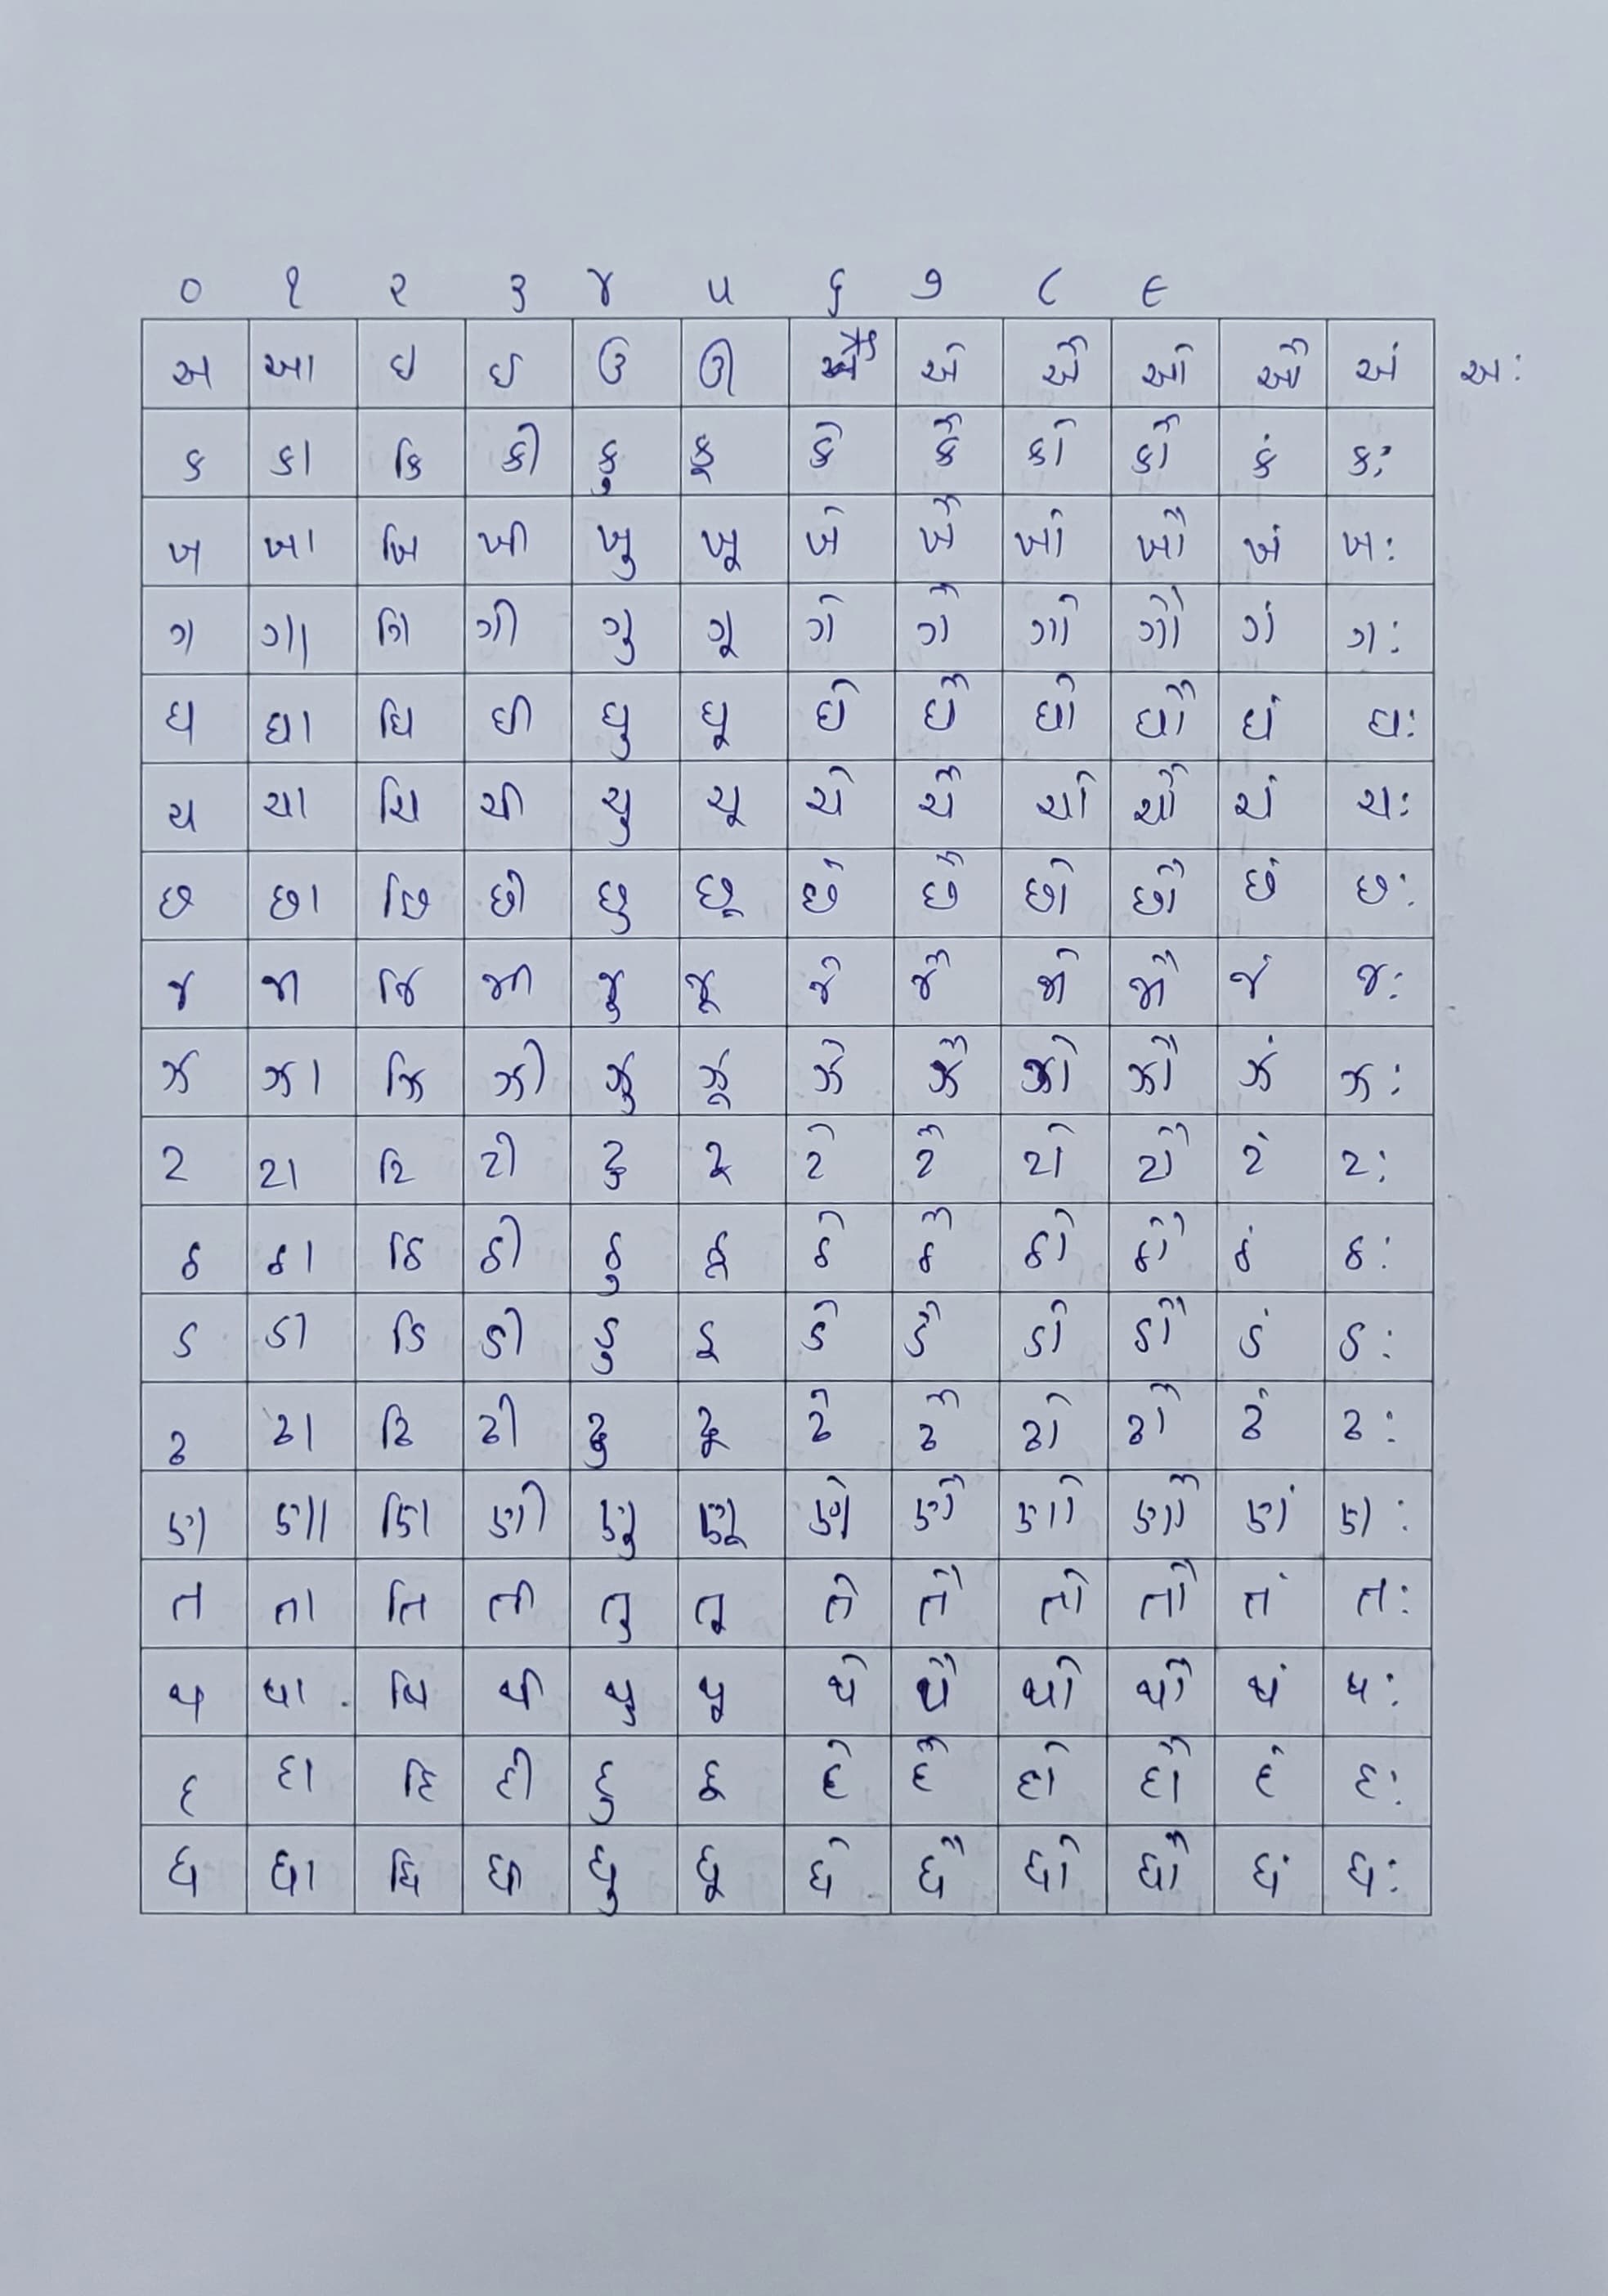 ૦ ૧ ૨ ૩ ૪ ૫ ૬ ૭ ૮ ૯
અ આ ઇ ઈ ઉ ઊ એ ઐ ઓ ઔ અં અઃ
ક કા કિ કી કુ કૂ કે કૈ કો કૌ કં કઃ
ખ ખા ખિ ખી ખુ ખૂ ખે ખૈ ખો ખૌ ખં ખઃ
ગ ગા ગિ ગી ગુ ગૂ ગે ગૈ ગો ગૌ ગં ગઃ
ઘ ઘા ઘિ ઘી ઘુ ઘૂ ઘે ઘૈ ઘો ઘૌ ઘં ઘઃ
ચ ચા ચિ ચી ચુ ચૂ ચે ચૈ ચો ચૌ ચં ચઃ
છ છા છિ છી છુ છૂ છે છૈ છો છૌ છં છઃ
જ જા જિ જી જુ જૂ જે જૈ જો જૌ જં જઃ
ઝ ઝા ઝિ ઝી ઝુ ઝૂ ઝે ઝૈ ઝો ઝૌ ઝં ઝઃ
ટ ટા ટિ ટી ટુ ટૂ ટે ટૈ ટો ટૌ ટં ટઃ
ઠ ઠા ઠિ ઠી ઠુ ઠૂ ઠે ઠૈ ઠો ઠૌ ઠં ઠઃ
ડ ડા ડિ ડી ડુ ડૂ ડે ડૈ ડો ડૌ ડં ડઃ
ઢ ઢા ઢિ ઢી ઢુ ઢૂ ઢે ઢૈ ઢો ઢૌ ઢં ઢઃ
ણ ણા ણિ ણી ણુ ણૂ ણે ણૈ ણો ણૌ ણં ણઃ
ત તા તિ તી તુ તૂ તે તૈ તો તૌ તં તઃ
થ થા થિ થી થુ થૂ થે થૈ થો થૌ થં થઃ
દ દા દિ દી દુ દૂ દે દૈ દો દૌ દં દઃ
ધ ધા ધિ ધી ધુ ધૂ ધે ધૈ ધો ધૌ ધં ધઃ